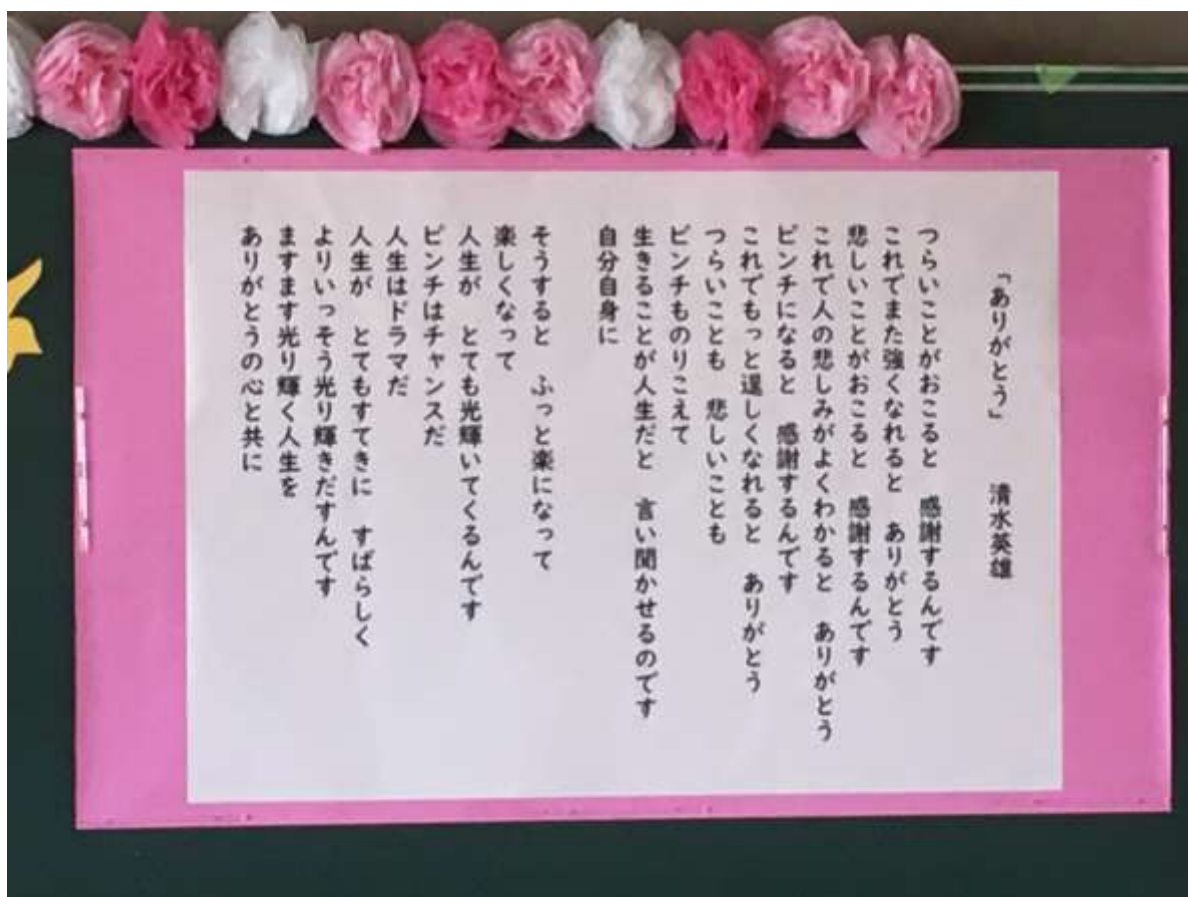 「ありがとう」　　清水英雄
つらいことがおこると　感謝するんです
これでまた強くなれると　ありがとう
悲しいことがおこると　感謝するんです
これで人の悲しみがよくわかると　ありがとう
ピンチになると　感謝するんです
これでもっと逞しくなれると　ありがとう
つらいことも　悲しいことも
ピンチものりこえて
生きることが人生だと　言い聞かせるのです
自分自身に
そうすると　ふっと楽になって
楽しくなって
人生が　とても光輝いてくるんです
ピンチはチャンスだ
人生はドラマだ
人生が　とてもすてきに　すばらしく
よりいっそう光り輝きだすんです
ますます光り輝く人生を
ありがとうの心と共に